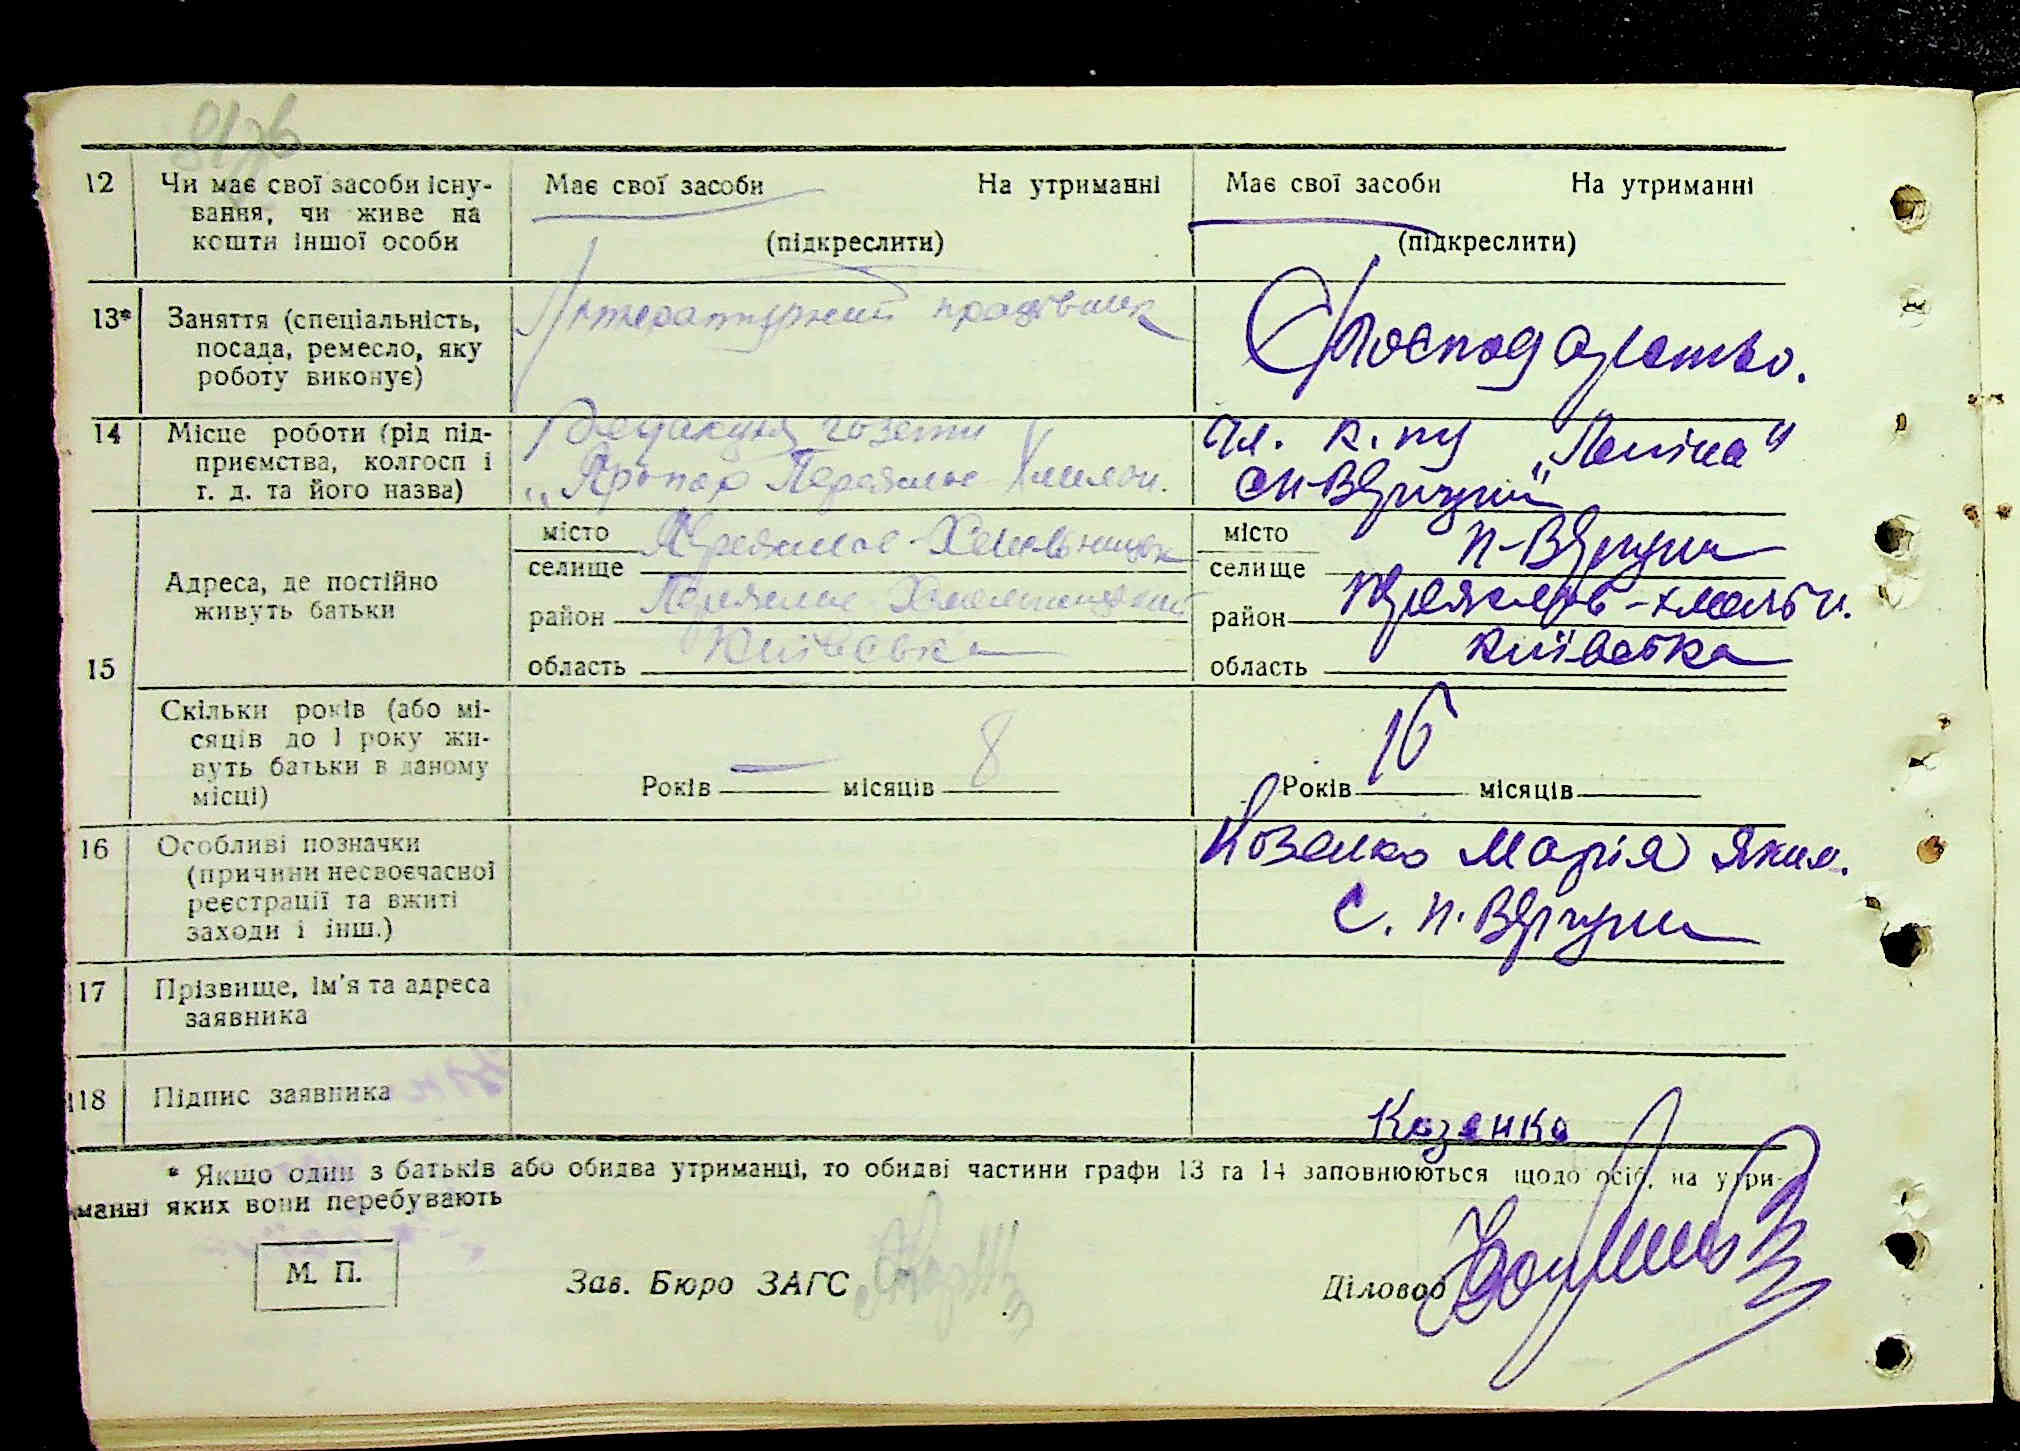 12 Чи має свої засоби існу-
вання, чи живе на
кошти іншої особи
Має свої засоби На утриманні
(підкреслити)
Має свої засоби На утриманні
(підкреслити)
13* Заняття (спеціальність,
посада, ремесло, яку
роботу виконує)
Літературний працівник
С/господарство.
14 Місце роботи (рід під-
приємства, колгосп і
т. д. та його назва)
Редакція газети
„Прапор Переяслав Хмельн.
чл. к.пу „Леніна"
15 Адреса, де постійно
живуть батьки
місто Переяслав-Хмельницьк
селище
район Переяслав Хмельницький
область Київська
місто п-Вергуни
селище
район Переяслав-Хмельн.
область Київська
Скільки років (або мі-
сяців до 1 року жи-
вуть батьки в даному
місці)
Років — місяців 8
Років 16 місяців
16 Особливі позначки
(причини несвоєчасної
реєстрації та вжиті
заходи і інш.)
Козенко Марія Яким.
с. п. Вергуни
17 Прізвище, ім'я та адреса
заявника
18 Підпис заявника
Козенко
* Якщо один з батьків або обидва утриманці, то обидві частини графи 13 та 14 заповнюються щодо осіб, на утри-
манні яких вони перебувають
М. П.
Зав. Бюро ЗАГС
Діловод